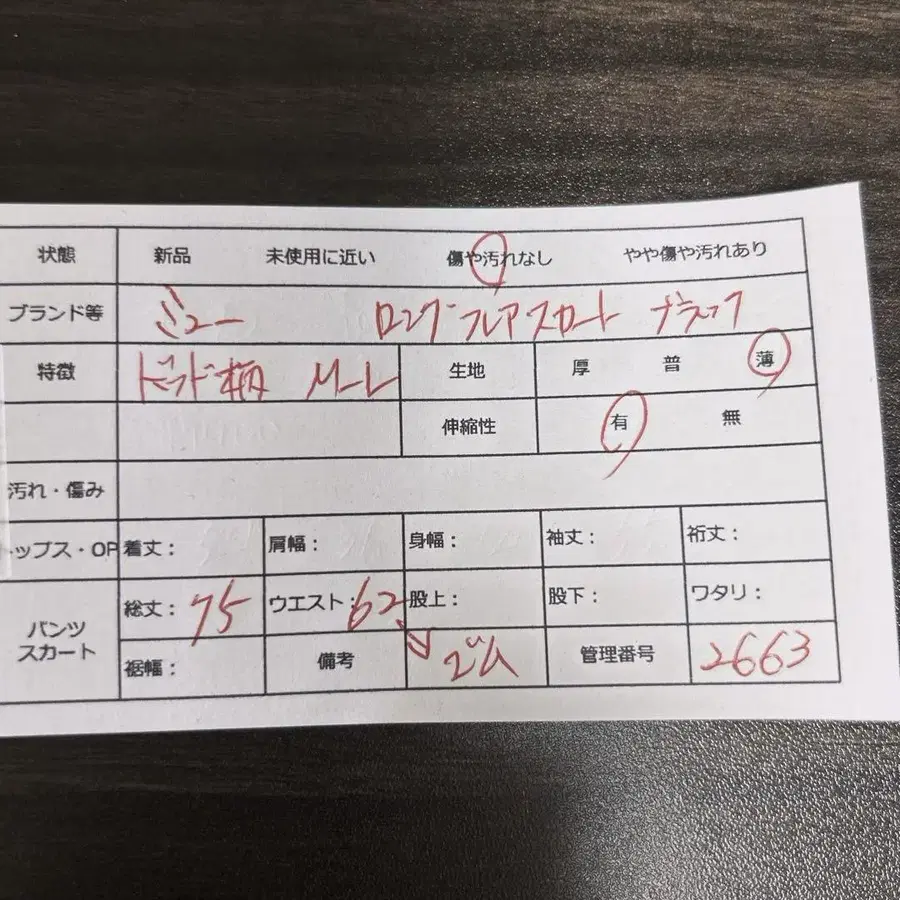 状態 新品 未使用に近い 傷や汚れなし やや傷や汚れあり
ブランド等 ミュー ロングフレアスカート ブラック
特徴 ドット柄 M-L 生地 厚 普 薄
伸縮性 有 無
汚れ・傷み
ップス・OP 着丈: 肩幅: 身幅: 袖丈: 裄丈:
パンツ スカート 総丈: 75 ウエスト: 62 股上: 股下: ワタリ:
裾幅: 備考 ゴム 管理番号 2663